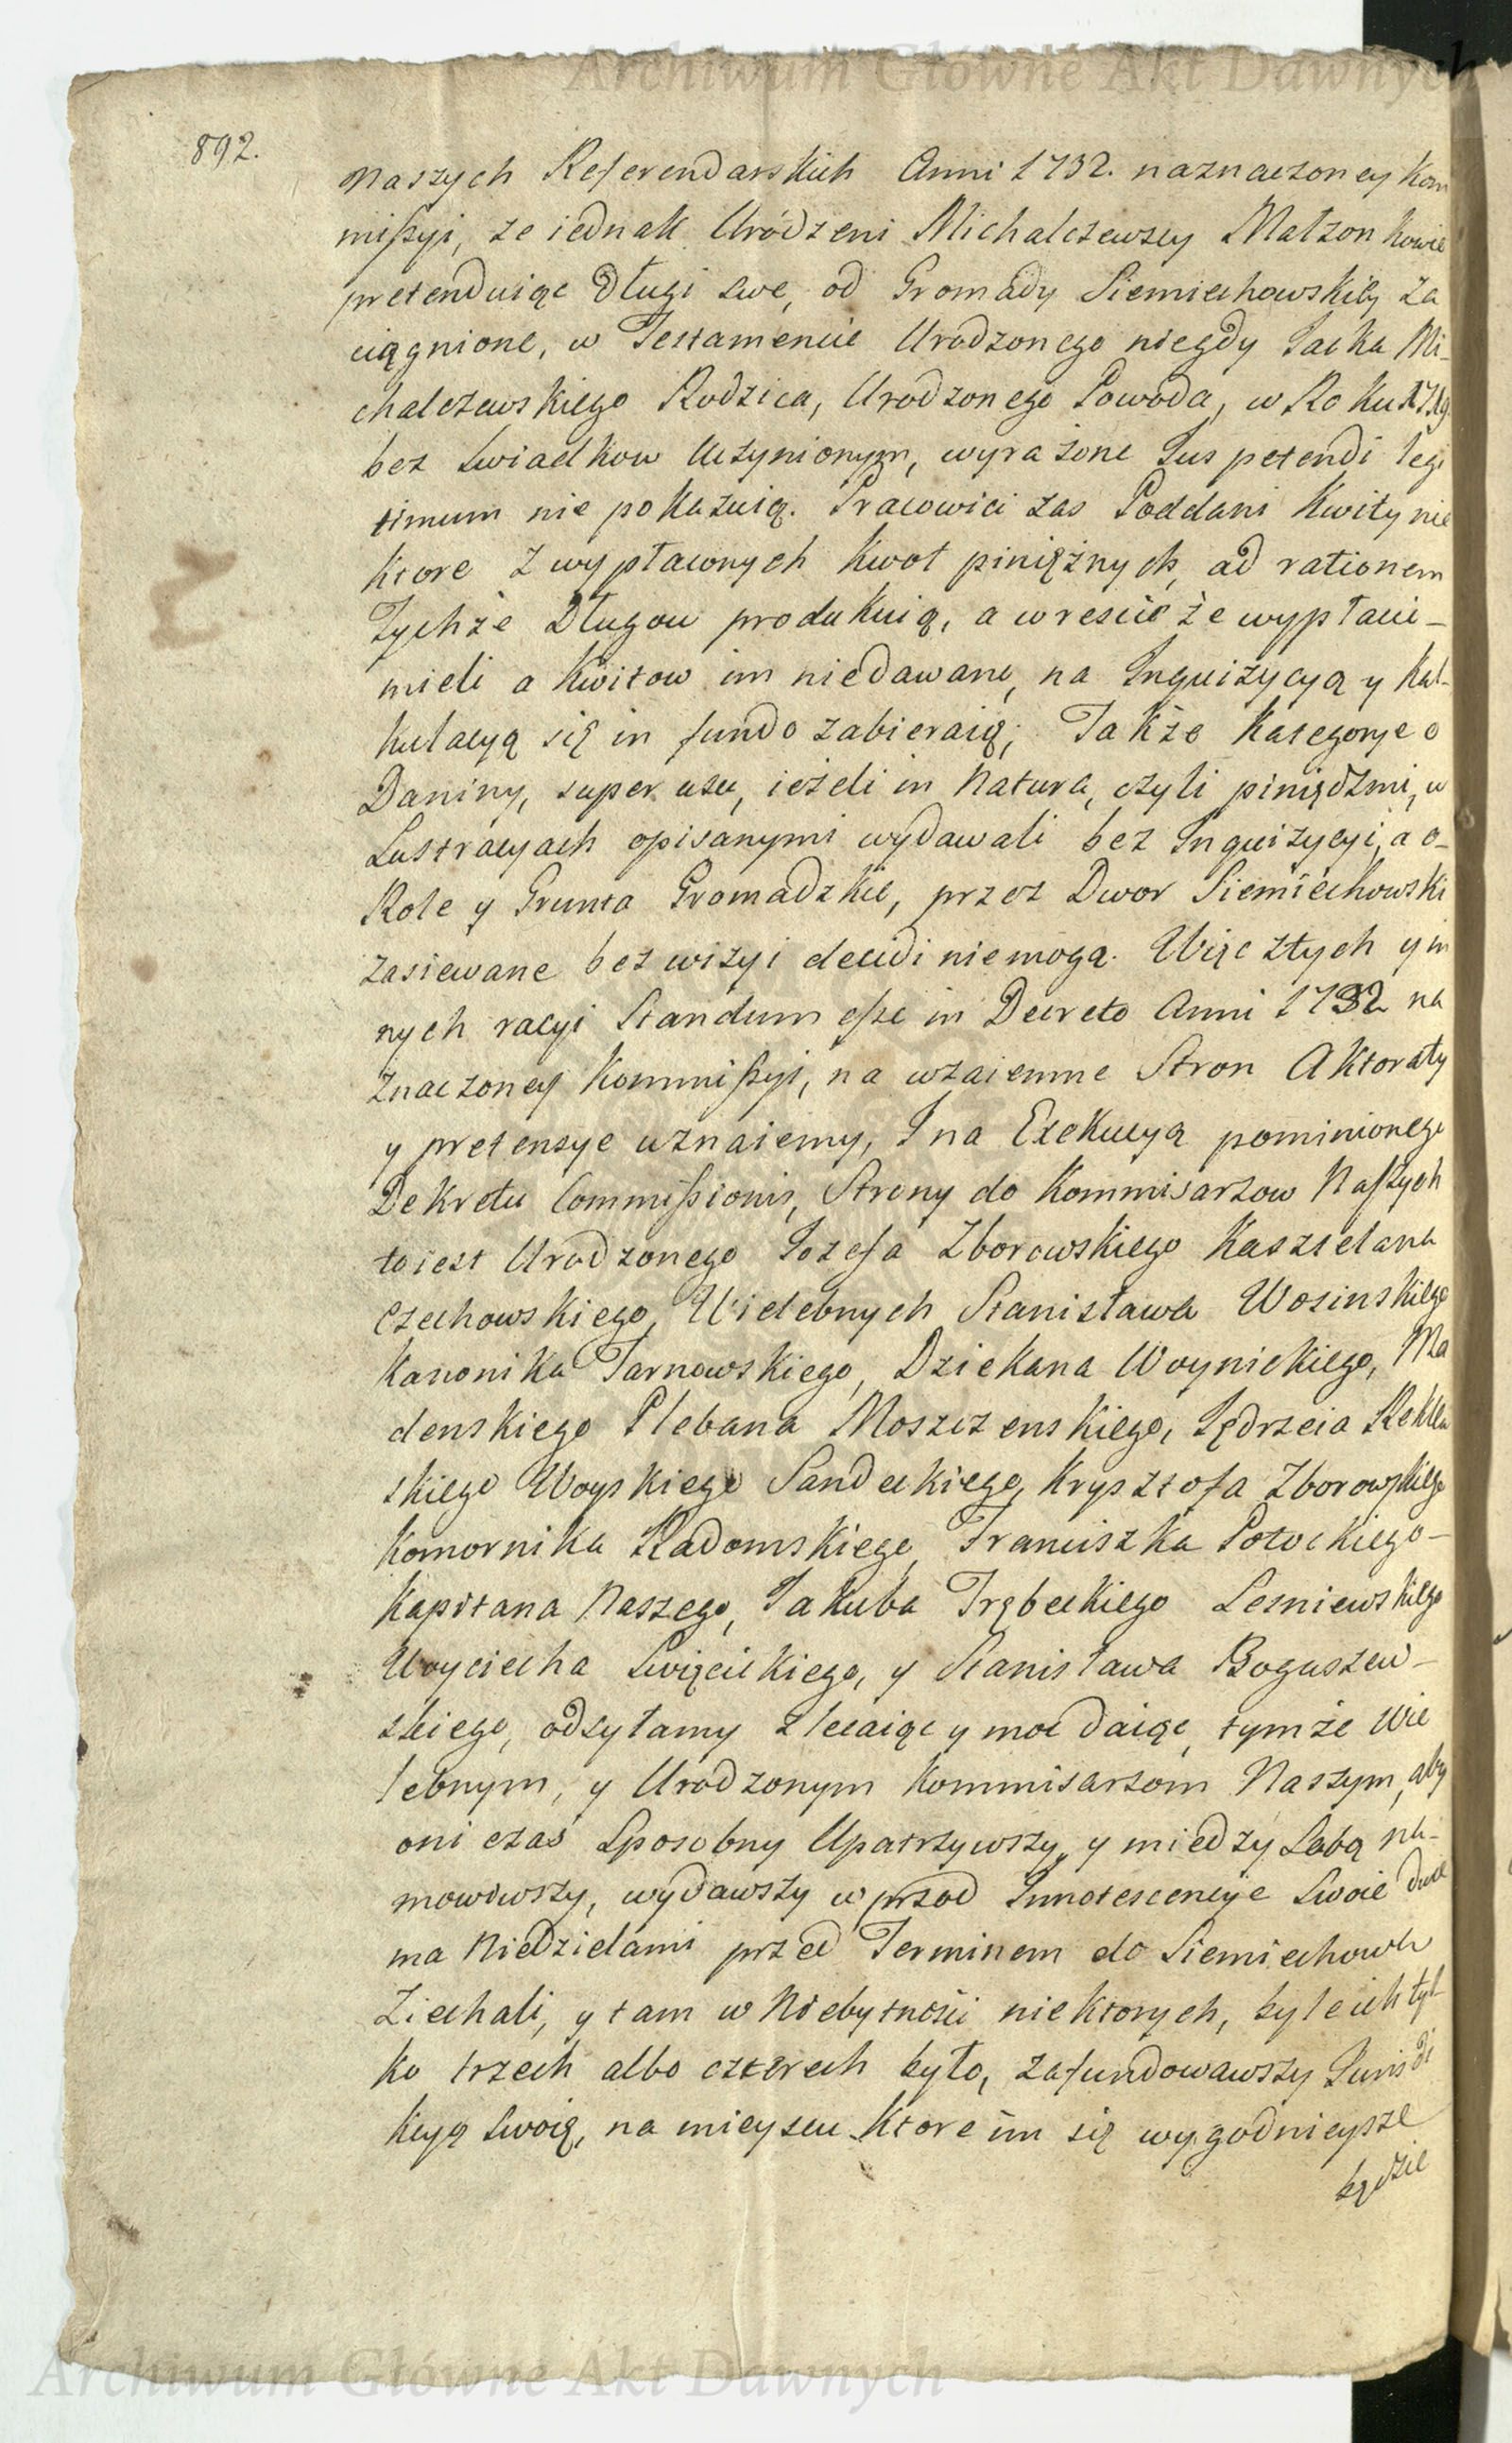 Archiwum Główne Akt Dawnych
892.
naszych Referendarskich Anni 1732. naznaczoney Kom
mißyi, ze iednak Uródzeni Michalczewscy Małzonkowie
pretenduiąc Długi swe, od Gromady Siemiechowskiey za
ciągnione, w Testamencie Urodzonego niegdy Jacka Mi_
chalczewskiego Rodzica, Urodzonego Powoda, w Roku
bez Swiadkow Uczynionym, wyrażone Jus petendi legi
timum nie pokazuią. Pracowici zas Poddani Kwity nie
ktore z wypłaconych Kwot pinięžnych, ad rationem
Tychże Długow produkuią, a wrescie że wypłaci_
mieli a Kwitow im niedawano, na Inquizycyą y Kal_
kulacyą się in fundo zabieraią; Także Kategorye o
Daniny, super usu, ieżeli in Natura, czyli piniędzmi, w
Lustracyach opisanymi wydawali bez Inquizycyi, a o_
Role y Grunta Gromadzkie, przez Dwor Siemiechowski
zasiewane bez wizyi decidi niemogą. Więc ztych y in
nych racyi Standum eße in Decreto Anni 1732 na
znaczoney Kommißyi, na wzaiemne Stron Aktoraty
y pretensye uznaiemy, I na Exekucyą pominionego
Dekretu Commißionis, Strony do Kommisarzow Naszych
toiest Urodzonego Jozefa Zborowskiego Kasztelana
Czechowskiego, Wielebnych Stanisława Wosinskiego
Kanonika Tarnowskiego, Dziekana Woynickiego, Ma
denskiego Plebana Moszczenskiego, Jędrzeia
skiego Woyskiego Sandeckiego, Krysztofa Zborowskiego
Komornika Radomskiego, Franciszka Potockiego_
Kapitana Naszego, Jakuba Trębeckiego Lesniewskiego
Woyciecha Swięcickiego, y Stanisława Boguszew_
skiego, odsyłamy zlecaiąc y moc daiąc, tymże Wie
lebnym, y Urodzonym Kommisarzom Naszym, aby
oni czas Sposobny Upatrzywszy, y miedzy Sobą na_
mowiwszy, wydawszy w przod Innotescencye Swoie dwie
ma Niedzielami przed Terminem do Siemiechowa
Ziechali, y tam w Niebytności niektorych, byle ich tyl_
ko trzech albo czterech było, zafundowawszy Jurisdi
kcyą Swoią, na mieyscu Ktore im się wygodnieysze
będzie
Archiwum Główne Akt Dawnych